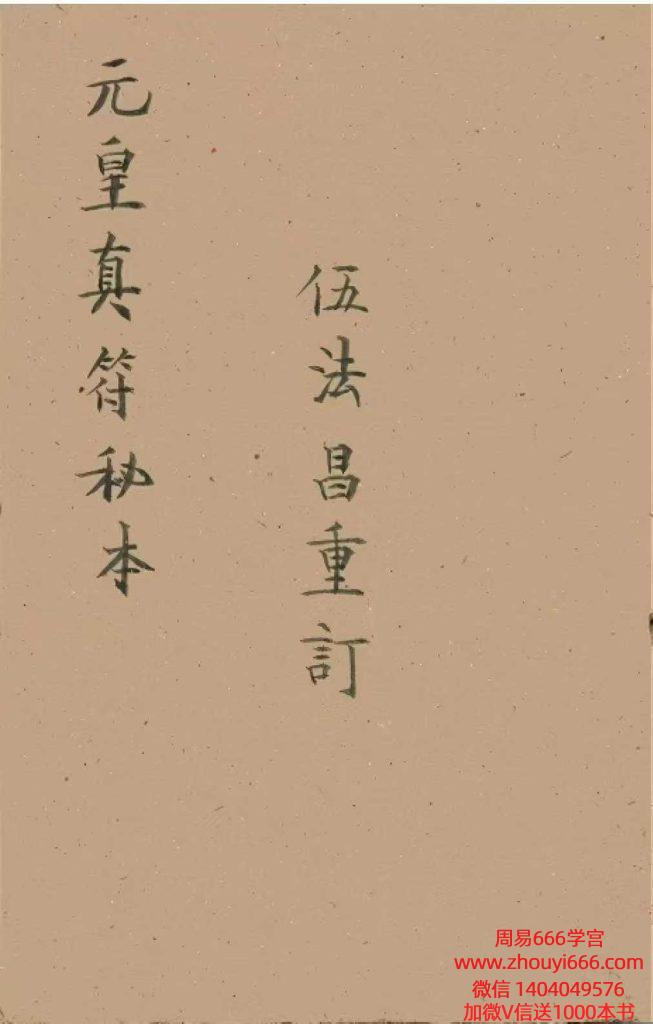 元皇真符秘本
伍法昌重訂
周易666学宫
www.zhouyi666.com
微信 1404049576
加微V信送1000本书